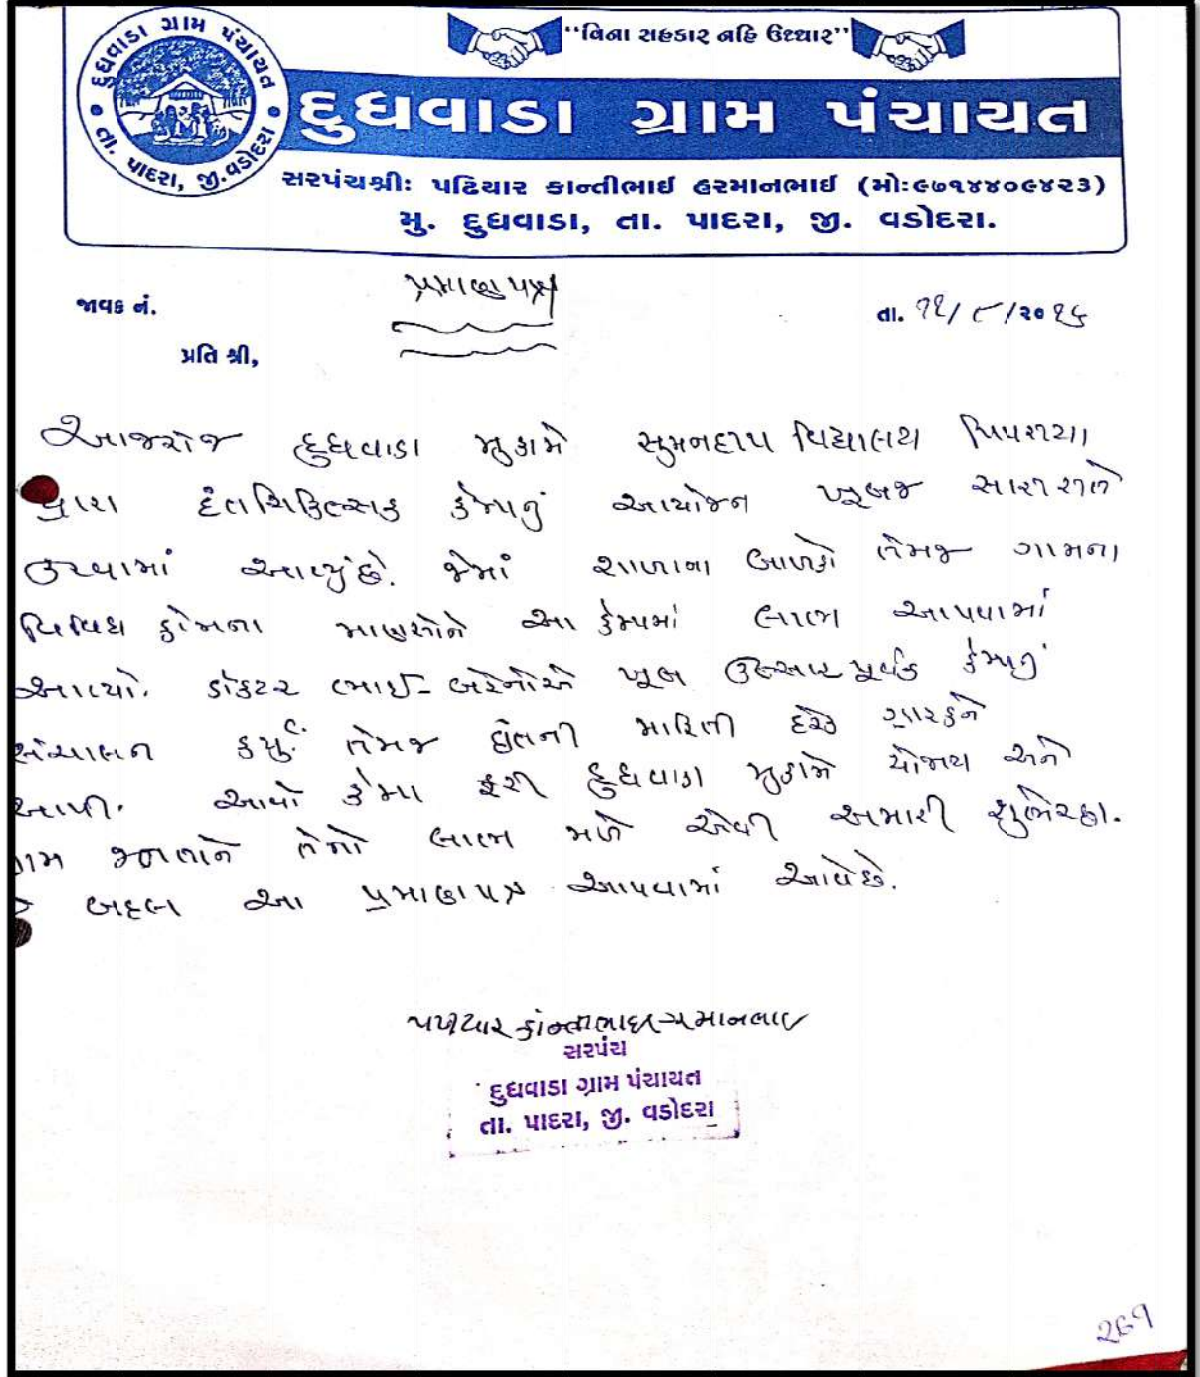 દુધવાડા ગ્રામ પંચાયત
તા. પાદરા, જી. વડોદરા
"વિના સહકાર નહિ ઉધ્ધાર"
દુધવાડા ગ્રામ પંચાયત
સરપંચશ્રી: પઢિયાર કાન્તીભાઈ હરમાનભાઈ (મો:૯૭૧૪૪૦૯૪૨૩)
મુ. દુધવાડા, તા. પાદરા, જી. વડોદરા.
પ્રમાણપત્ર
જાવક નં.
તા. ૧૨/૮/૨૦૧૬
પ્રતિ શ્રી,
આજરોજ દુધવાડા મુકામે સુમનદીપ વિદ્યાલય પિપરીયા
દ્વારા દંતચિકિત્સક કેમ્પનું આયોજન ખૂબજ સારી રીતે
કરવામાં આવ્યું છે. જેમાં શાળાના બાળકો તેમજ ગામના
વિવિધ કોમના માણસોને આ કેમ્પમાં લાભ આપવામાં
આવ્યો. ડોકટર ભાઈ-બહેનોએ ખૂબ ઉત્સાહ પૂર્વક કેમ્પનું
સંચાલન કર્યું તેમજ દાંતની માહિતી દરેક ગ્રાહકને
આપી. આવો કેમ્પ ફરી દુધવાડા મુકામે યોજાય અને
ગામ જનતાને તેનો લાભ મળે એવી અમારી શુભેચ્છા.
બદલ આ પ્રમાણપત્ર આપવામાં આવેછે.
પઢીયાર કાંન્તીભાઇ હરમાનભાઇ
સરપંચ
દુધવાડા ગ્રામ પંચાયત
તા. પાદરા, જી. વડોદરા
૨૬૧